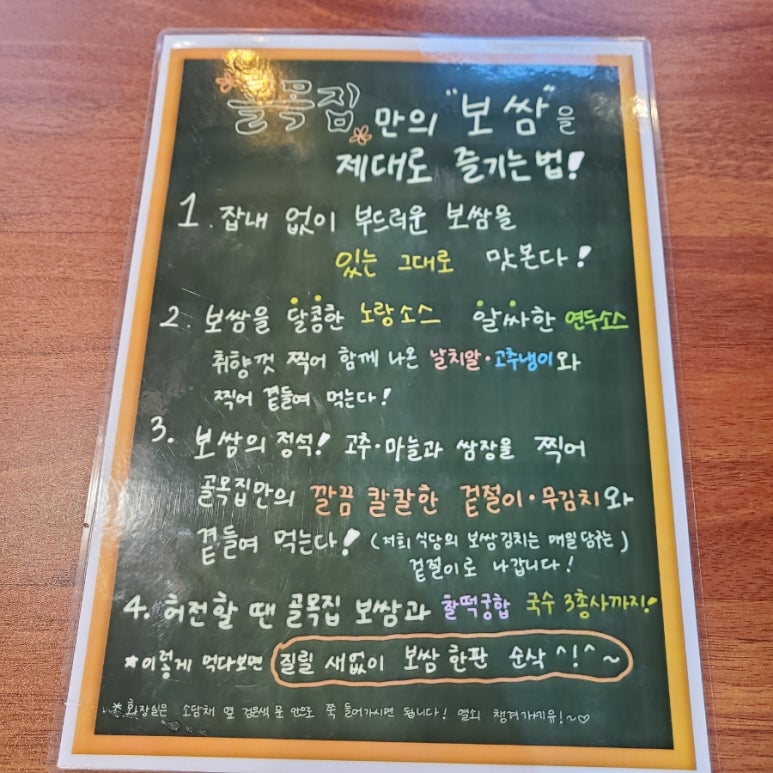 골목집만의 "보쌈"을
제대로 즐기는법!
1. 잡내 없이 부드러운 보쌈을
있는 그대로 맛본다!
2. 보쌈을 달콤한 노랑소스 알싸한 연두소스
취향껏 찍어 함께 나온 날치알·고추냉이와
찍어 곁들여 먹는다!
3. 보쌈의 정석! 고추·마늘과 쌈장을 찍어
골목집만의 깔끔 칼칼한 겉절이·무김치와
곁들여 먹는다! (저희 식당의 보쌈김치는 매일 담구는)
겉절이로 나갑니다!
4. 허전할 땐 골목집 보쌈과 찰떡궁합 국수 3총사까지!
*이렇게 먹다보면 질릴 새없이 보쌈 한판 순삭 ^!^~
*화장실은 소담채 옆 검은색 문 안으로 쭉 들어가시면 됩니다! 열쇠 챙겨가기유!~♡